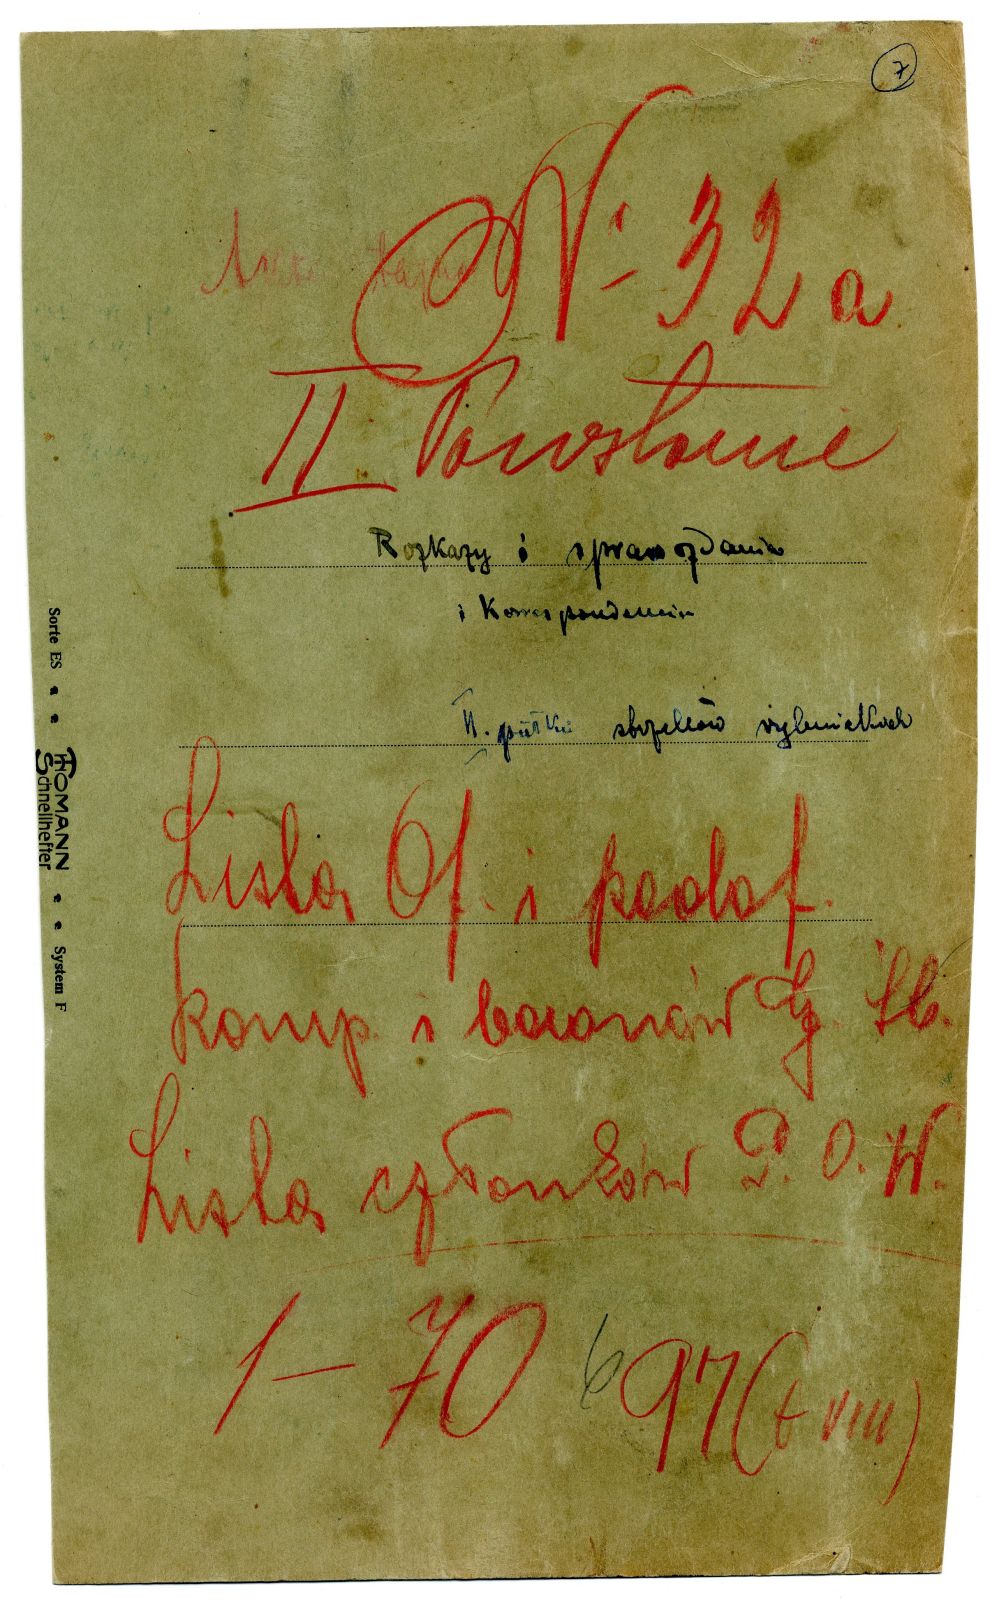 7
Nr 32 a
II Powstanie
Rozkazy i sprawozdania
i Korespondencja
II. pułku strzelców bytomskich
Lista Of. i podof.
Komp. i baonów
Lista członków P. O. W.
1 – 70 6 97 (t VIII)
Sorte ES
THOMANN
Schnellhefter
System F